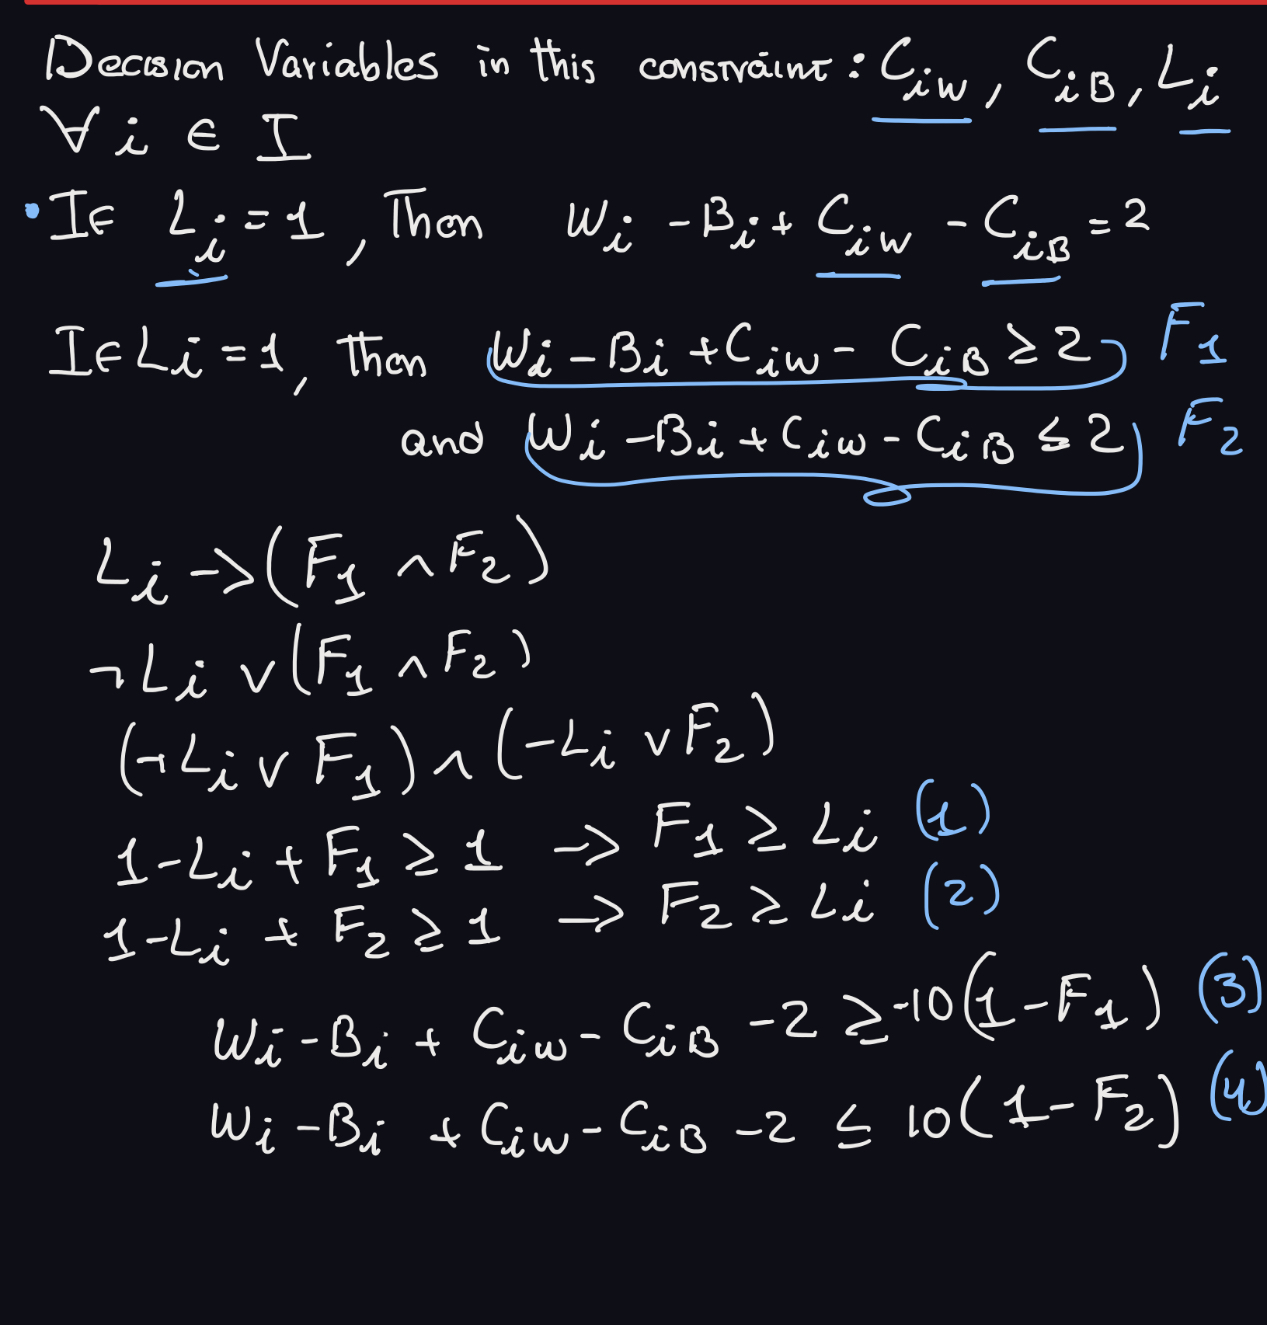 Decision Variables in this constraint: C_iW, C_iB, L_i
∀ i ∈ I
• If L_i = 1, Then W_i - B_i + C_iW - C_iB = 2
If L_i = 1, then W_i - B_i + C_iW - C_iB ≥ 2 F_1
and W_i - B_i + C_iW - C_iB ≤ 2 F_2
L_i -> (F_1 ∧ F_2)
¬L_i ∨ (F_1 ∧ F_2)
(¬L_i ∨ F_1) ∧ (-L_i ∨ F_2)
1 - L_i + F_1 ≥ 1 -> F_1 ≥ L_i (1)
1 - L_i + F_2 ≥ 1 -> F_2 ≥ L_i (2)
W_i - B_i + C_iW - C_iB - 2 ≥ -10(1 - F_1) (3)
W_i - B_i + C_iW - C_iB - 2 ≤ 10(1 - F_2) (4)